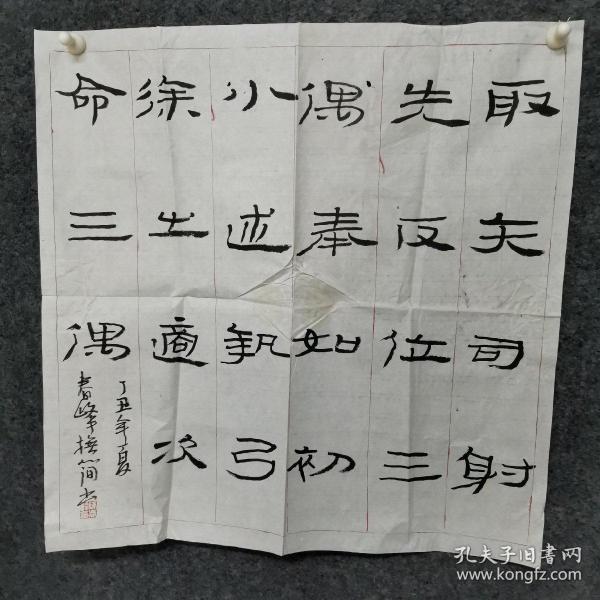 取矢司射
先反位三
偶奉如初
小述執弓
徐㞢適次
命三偶
丁丑年夏
春峰撫簡
孔夫子旧书网
www.kongfz.com